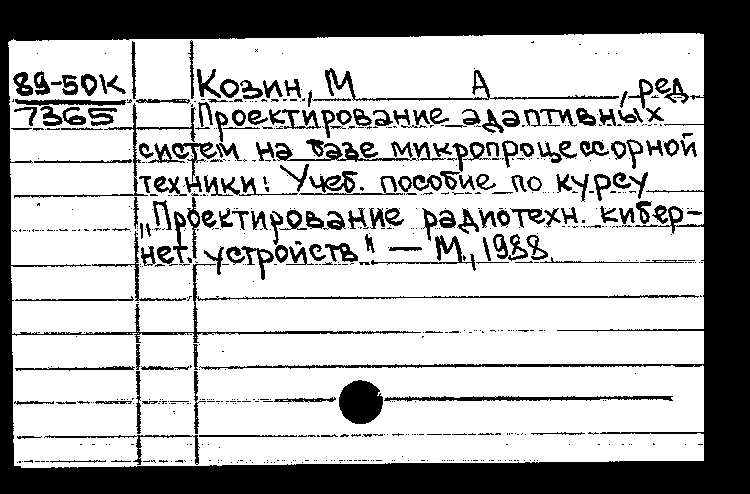 89-50К Козин, М А , ред.
7365 Проектирование адаптивных
систем на базе микропроцессорной
техники: Учеб. пособие по курсу
„Проектирование радиотехн. кибер-
нет. устройств". — М., 1988.